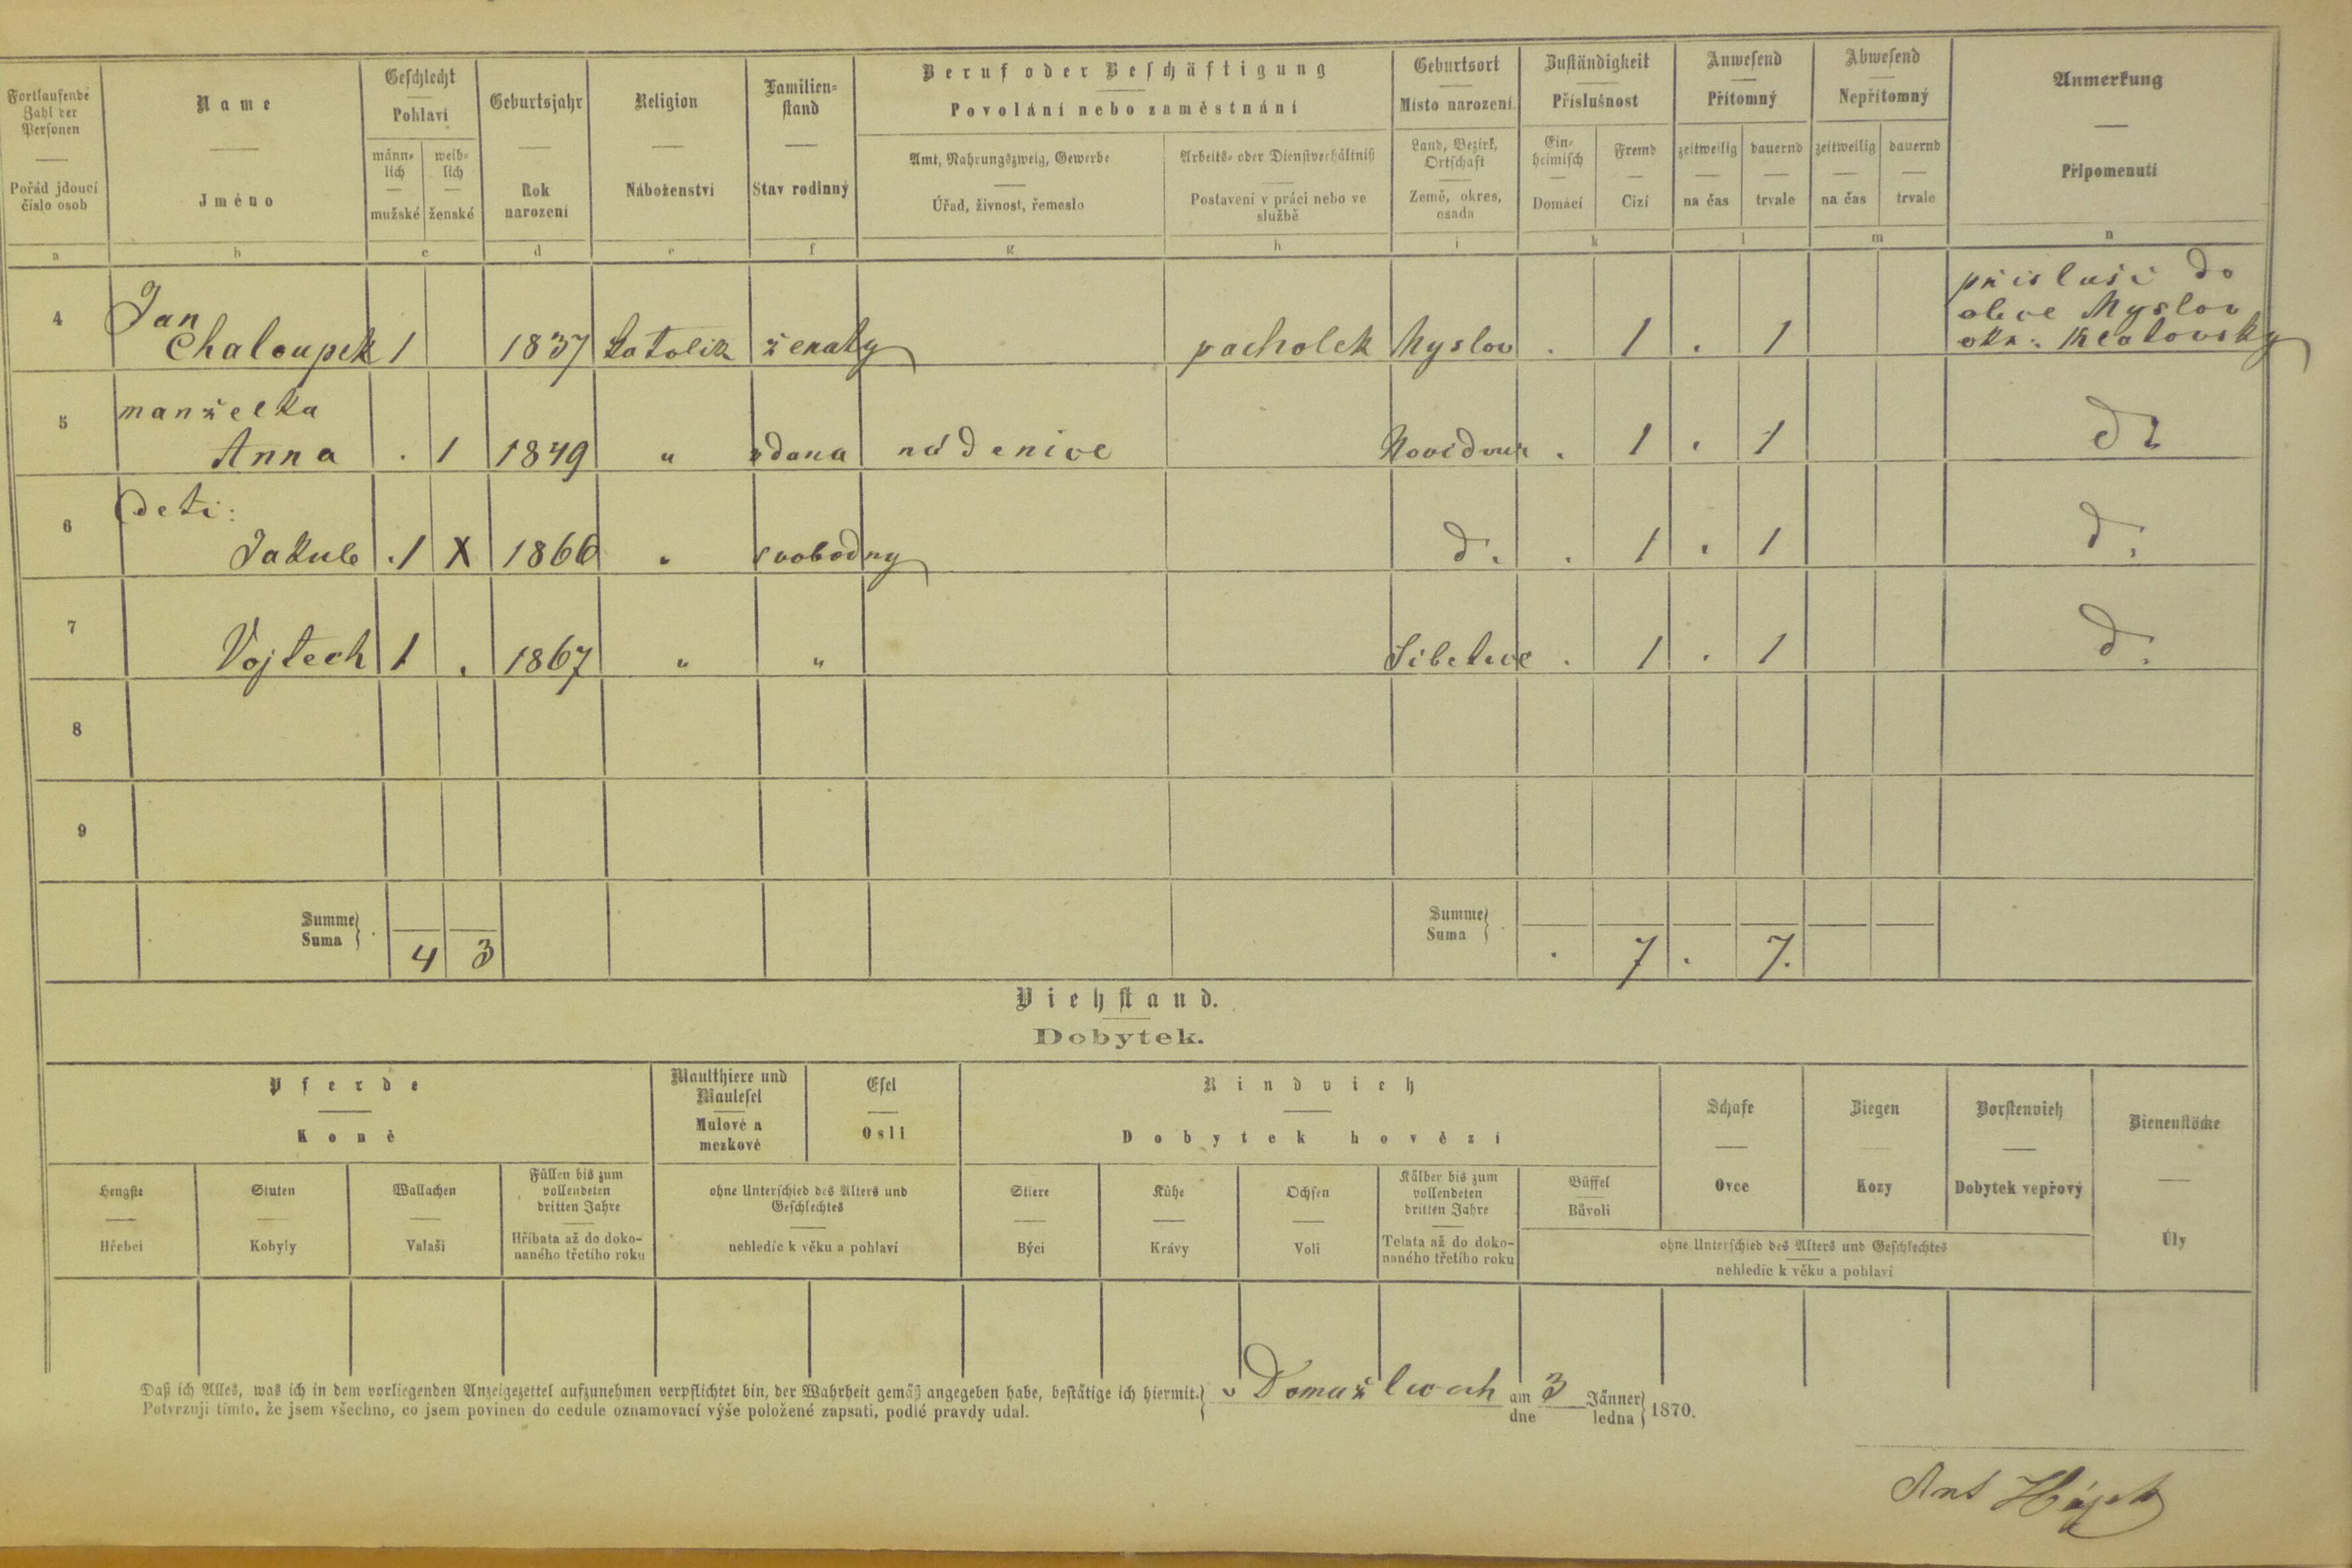 Fortlaufende Zahl der Personen
Pořád jdoucí číslo osob
Name
Jméno
Geschlecht
Pohlaví
männ-lich
mužské
weib-lich
ženské
Geburtsjahr
Rok narození
Religion
Náboženství
Familien-stand
Stav rodinný
Beruf oder Beschäftigung
Povolání nebo zaměstnání
Amt, Nahrungszweig, Gewerbe
Úřad, živnost, řemeslo
Arbeits- oder Dienstverhältniß
Postavení v práci nebo ve službě
Geburtsort
Místo narození
Land, Bezirk, Ortschaft
Země, okres, osada
Zuständigkeit
Příslušnost
Ein-heimisch
Domácí
Fremd
Cizí
Anwesend
Přítomný
zeitweilig
na čas
dauernd
trvale
Abwesend
Nepřítomný
zeitweilig
na čas
dauernd
trvale
Anmerkung
Připomenutí
a b c d e f g h i k l m n
přísluší do
obce Myslov
okr. Klatovsky
4 Jan
Chaloupek 1 1837 katolik ženaty pacholek Myslov . 1 . 1
5 manželka
Anna . 1 1849 " vdana nádenice Novidvur . 1 . 1 dt
6 deti:
Jakub .1 X 1866 " svobodny d. . 1 . 1 d.
7 Vojtech 1 . 1867 " " . 1 . 1 d.
8
9
Summe
Suma 4 3
Summe
Suma . 7 . 7.
Viehstand.
Dobytek.
Pferde
Koně
Maulthiere und Maulesel
Mulové a mezkové
Esel
Osli
Rindvieh
Dobytek hovězí
Schafe
Ovce
Ziegen
Kozy
Borstenvieh
Dobytek vepřový
Bienenstöcke
Úly
Hengste
Hřebci
Stuten
Kobyly
Wallachen
Valaši
Füllen bis zum vollendeten dritten Jahre
Hříbata až do doko-naného třetího roku
ohne Unterschied des Alters und Geschlechtes
nehledíc k věku a pohlaví
Stiere
Býci
Kühe
Krávy
Ochsen
Voli
Kälber bis zum vollendeten dritten Jahre
Telata až do doko-naného třetího roku
Büffel
Bůvoli
ohne Unterschied des Alters und Geschlechtes
nehledíc k věku a pohlaví
Daß ich Alles, was ich in dem vorliegenden Anzeigezettel aufzunehmen verpflichtet bin, der Wahrheit gemäß angegeben habe, bestätige ich hiermit.
Potvrzuji tímto, že jsem všechno, co jsem povinen do cedule oznamovací výše položené zapsati, podlé pravdy udal.
v Domažlicech am dne 3 Jänner ledna 1870.
Ant Hájek